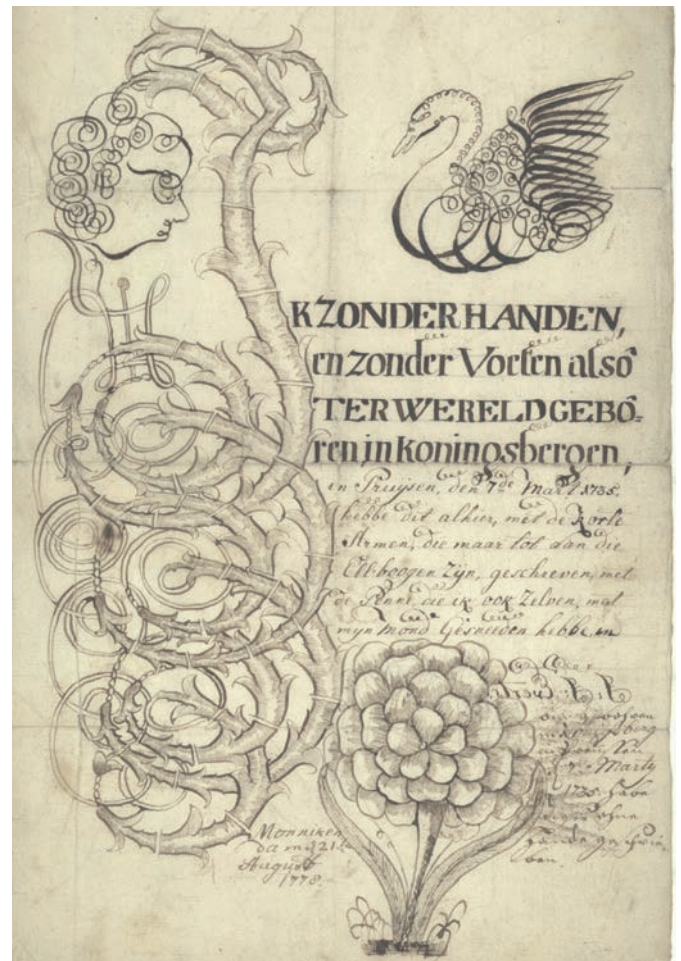 K ZONDER HANDEN,
en zonder Voeten alsô
TER WERELD GEBÔ-
ren in koningsbergen,
in Pruijsen, den 7de Mart 1735.
hebbe dit alhier, met de korte
Armen, die maar tot aan die
Ellboogen Zijn, geschreven, met
de Penne, die ik ook Zelven, met
mijn mond Gesneeden hebbe, en
Marty
1735 habe
dieses ohne
Hände geschrie-
ben.
Monniken
dam d 21
August
1778.